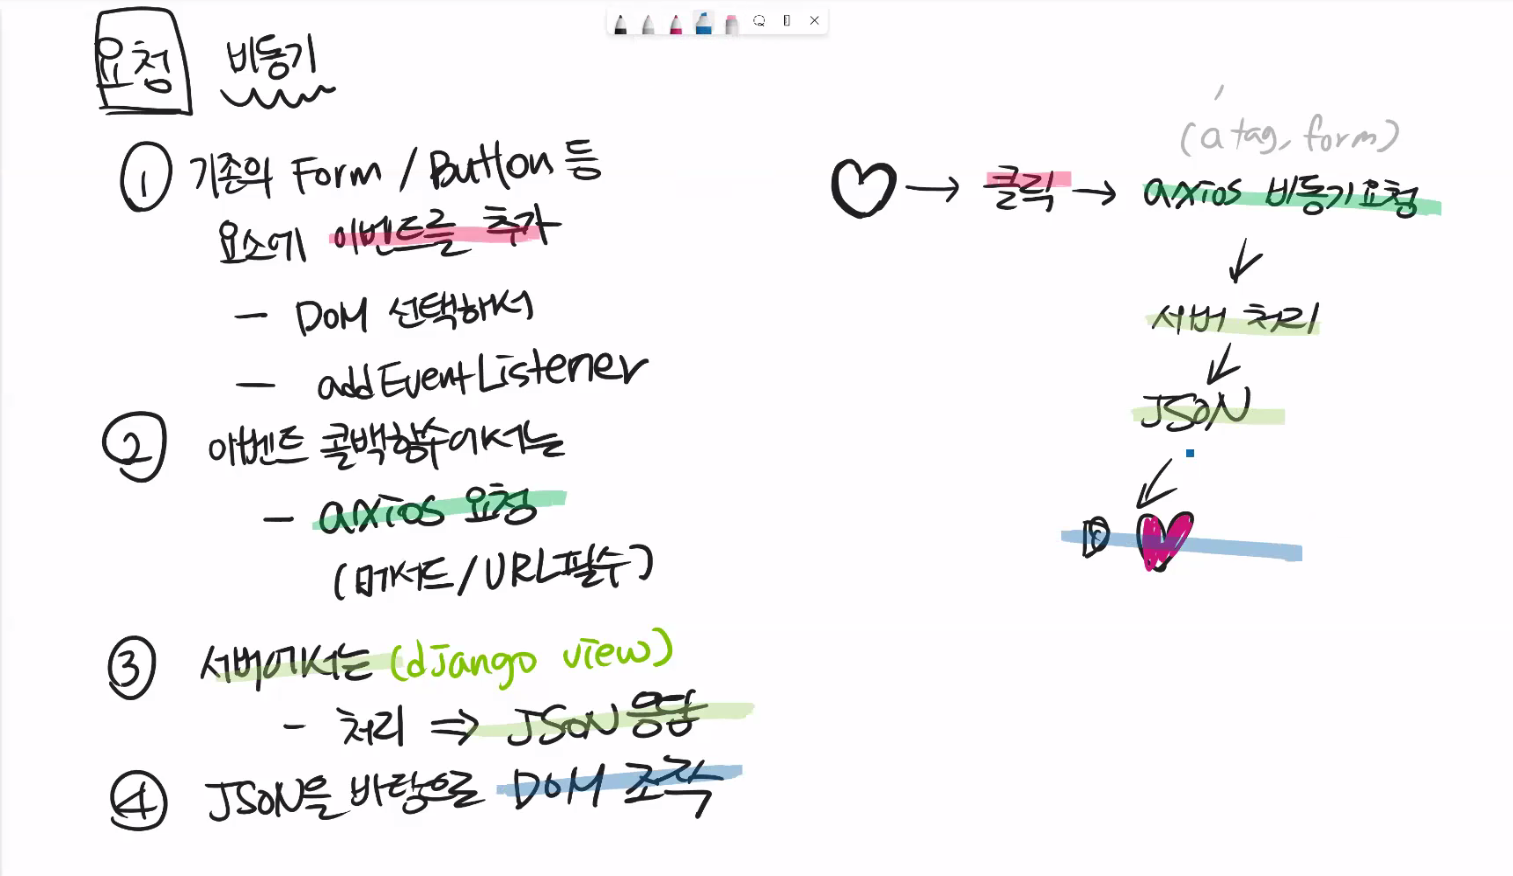 요청 비동기
① 기존의 Form / Button 등
요소에 이벤트를 추가
- DOM 선택해서
- addEventListener
② 이벤트 콜백함수에서는
- axios 요청
(메서드/URL필수)
③ 서버에서는 (django view)
- 처리 ⇒ JSON 응답
④ JSON을 바탕으로 DOM 조작
(a tag, form)
♡ → 클릭 → axios 비동기요청
↓
서버 처리
↓
JSON
↓